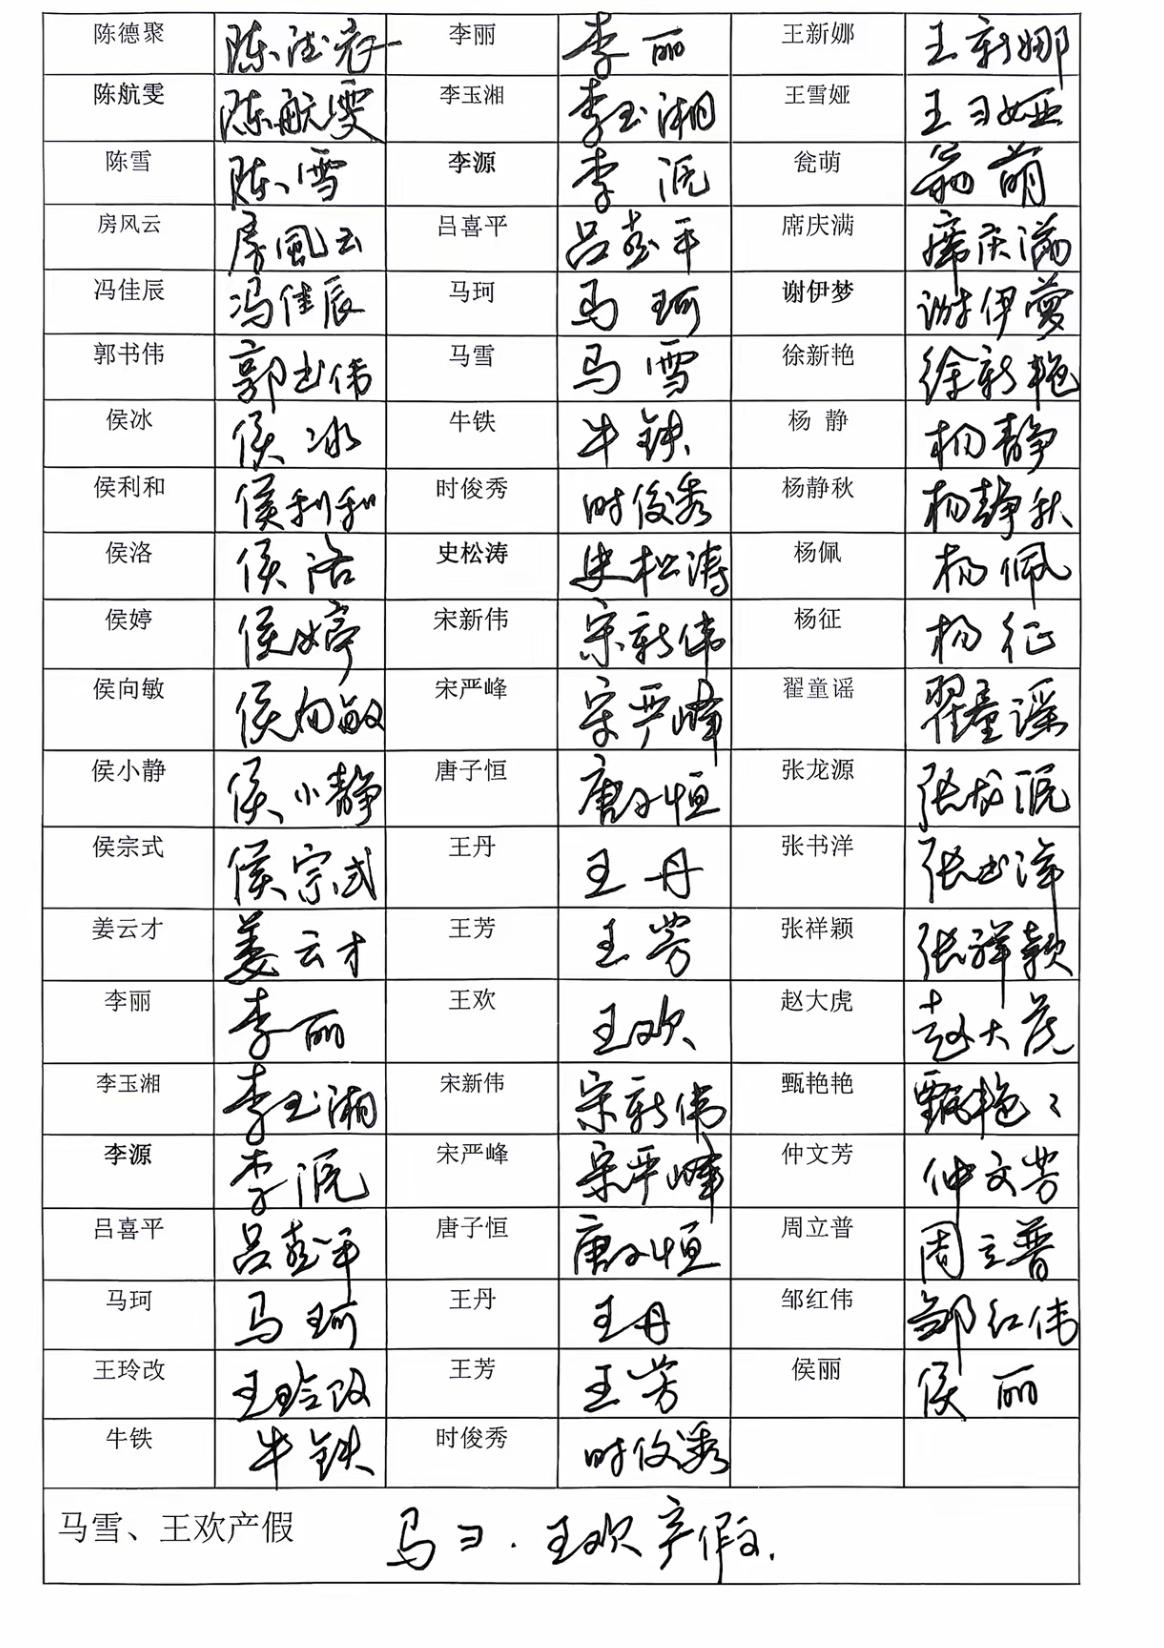 陈德聚 陈德聚 李丽 李丽 王新娜 王新娜
陈航雯 陈航雯 李玉湘 李玉湘 王雪娅 王彐娅
陈雪 陈雪 李源 李源 瓮萌 瓮萌
房风云 房風云 吕喜平 吕喜平 席庆满 席庆满
冯佳辰 冯佳辰 马珂 马珂 谢伊梦 谢伊梦
郭书伟 郭书伟 马雪 马雪 徐新艳 徐新艳
侯冰 侯冰 牛铁 牛铁 杨 静 杨静
侯利和 侯利和 时俊秀 时俊秀 杨静秋 杨静秋
侯洛 侯洛 史松涛 史松涛 杨佩 杨佩
侯婷 侯婷 宋新伟 宋新伟 杨征 杨征
侯向敏 侯向敏 宋严峰 宋严峰 翟童谣 翟童谣
侯小静 侯小静 唐子恒 唐子恒 张龙源 张龙源
侯宗式 侯宗式 王丹 王丹 张书洋 张书洋
姜云才 姜云才 王芳 王芳 张祥颖 张祥颖
李丽 李丽 王欢 王欢 赵大虎 赵大虎
李玉湘 李玉湘 宋新伟 宋新伟 甄艳艳 甄艳〻
李源 李源 宋严峰 宋严峰 仲文芳 仲文芳
吕喜平 吕喜平 唐子恒 唐子恒 周立普 周立普
马珂 马珂 王丹 王丹 邹红伟 邹红伟
王玲改 王玲改 王芳 王芳 侯丽 侯丽
牛铁 牛铁 时俊秀 时俊秀
马雪、王欢产假 马彐.王欢产假.